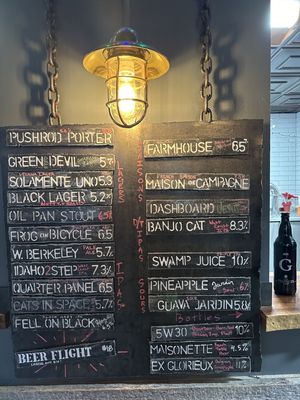 PUSHROD PORTER
GREEN DEVIL 5%
SOLAMENTE UNO 5.3
BLACK LAGER 5.2%
OIL PAN STOUT 6.5%
FROG ON BICYCLE 6.5
W. BERKELEY PALE ALE 5.7
IDAHO 2 STEP 7.3%
QUARTER PANEL 6.5
EATS IN SPACE 5.7%
FELL ON BLACK 4.5%
BEER FLIGHT $18
LAGERS
IPAS
FARMHOUSE 6.5
MAISON DE CAMPAGNE
DASHBOARD
BANJO CAT 8.3%
SWAMP JUICE 10%
PINEAPPLE JARDIN 6%
GUAVA JARDIN 5.8%
Bottles
5W30 10%
MAISONETTE 4.5%
EX GLORIEUX 11%
SAISONS
WILD IPAS
SOURS
G